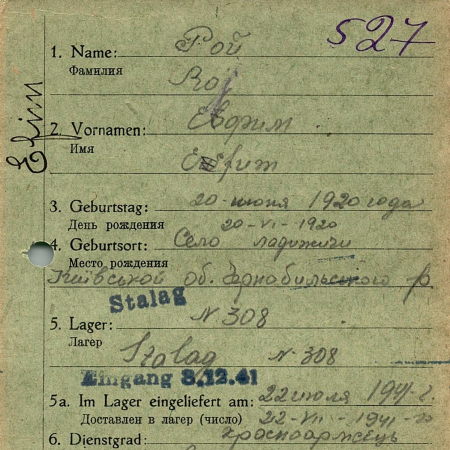 527
1. Name: Рой
Фамилия
Roj
2. Vornamen: Евфим
Имя
Eefim
3. Geburtstag: 20-июня 1920 года
День рождения 20-VI-1920
4. Geburtsort: Село Ладижичи
Место рождения
Київськой об. Чорнобильского р
Stalag
5. Lager: N 308
Лагер
Stalag N 308
Eingang 3.12.41
5a. Im Lager eingeliefert am: 22 июля 1941 г.
Доставлен в лагер (число) 22-VII-1941-го
6. Dienstgrad: Красноармєець